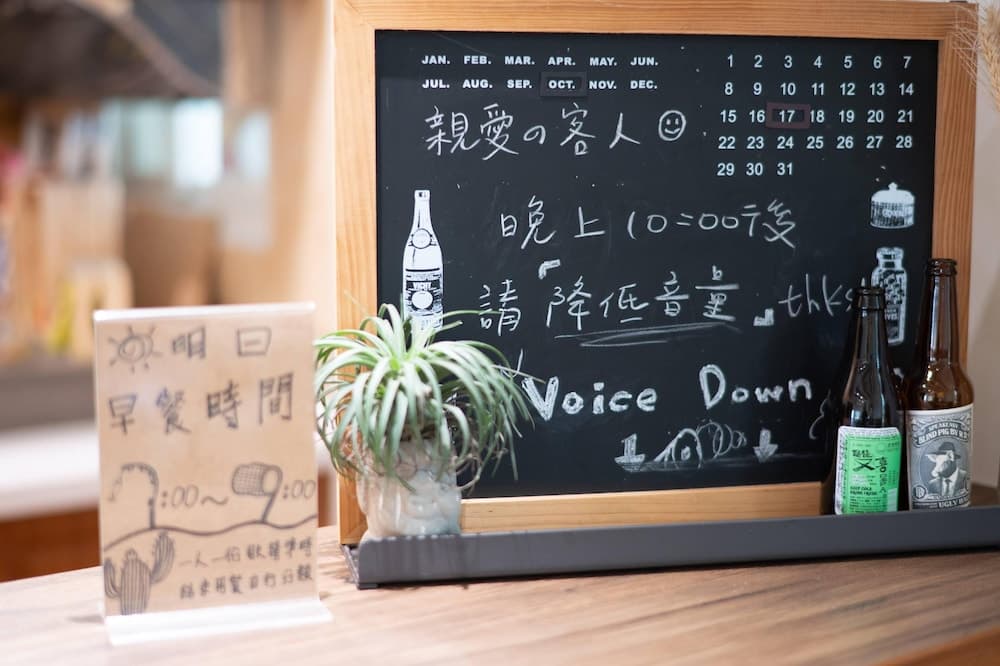 JAN. FEB. MAR. APR. MAY. JUN.
JUL. AUG. SEP. OCT. NOV. DEC.
1 2 3 4 5 6 7
8 9 10 11 12 13 14
15 16 17 18 19 20 21
22 23 24 25 26 27 28
29 30 31
親愛の客人
晚上10:00後
請「降低音量」thks
Voice Down
明日
早餐時間
7:00～9:00
一人一份敬請準時
BLIND PIG